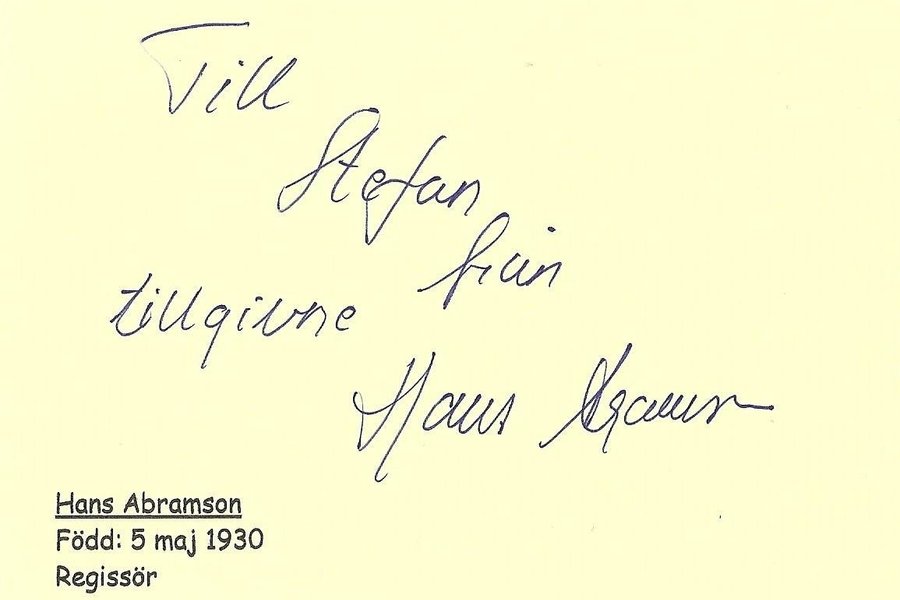 Till
Stefan
från
tillgivne
Hans Abramson
Hans Abramson
Född: 5 maj 1930
Regissör